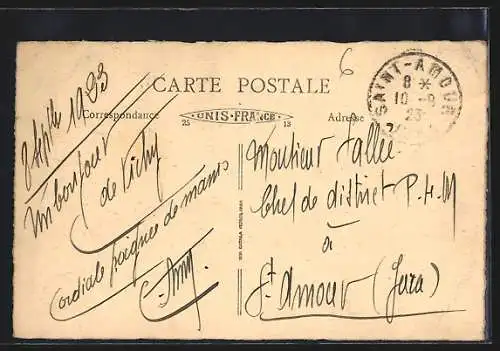 6
CARTE POSTALE
Correspondance
25 UNIS-FRANCE 13
Adresse
SAINT-AMOUR
8 *
10 - 9
23
8 1923
Un bonjour
de Vichy
Cordiale poignée de mains
Monsieur
Chef de district P.L.M
à
St. Amour (Jura)